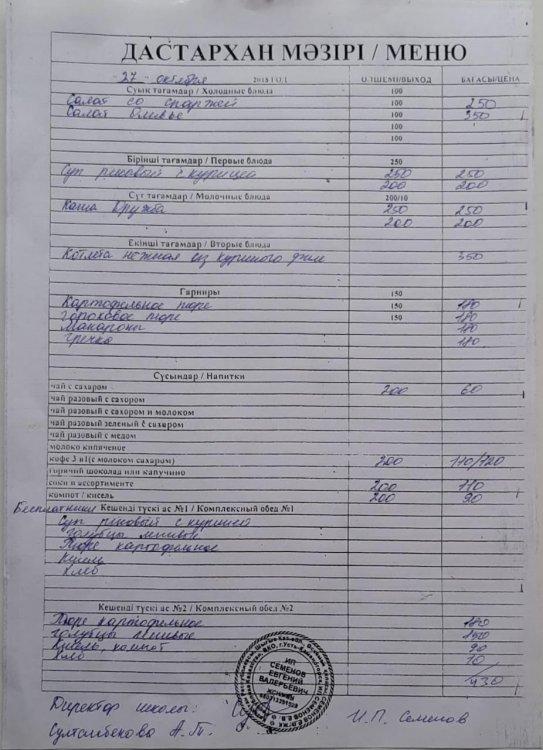 ДАСТАРХАН МӘЗІРІ / МЕНЮ
27 октября 2018 ГОД ӨЛШЕМІ/ВЫХОД БАҒАСЫ/ЦЕНА
Суық тағамдар / Холодные блюда 100
Салат со спаржей 100 250
Салат Оливье 100 250
100
100
Бірінші тағамдар / Первые блюда 250
Суп рисовый с курицей 250 250
200 200
Сүт тағамдар / Молочные блюда 200/10
Каша Дружба 250 250
200 200
Екінші тағамдар / Вторые блюда
Котлета нежная из куриного филе 350
Гарниры 150
Картофельное пюре 150 180
Гороховое пюре 150 180
Макароны 180
Гречка 180
Сусындар / Напитки
чай с сахаром 200 60
чай разовый с сахором
чай разовый с сахором и молоком
чай разовый зеленый с сахором
чай разовый с медом
молоко кипяченое
кофе 3 в1(с молоком сахаром) 200 110/120
горячий шоколад или капучино
соки в ассортименте 200 110
компот / кисель 200 90
Бесплатники Кешенді түскі ас №1 / Комплексный обед №1
Суп рисовый с курицей
Голубцы ленивые
Пюре картофельное
Кисель
Хлеб
Кешенді түскі ас №2 / Комплексный обед №2
Пюре картофельное 180
Голубцы ленивые 150
Кисель, компот 90
Хлеб 10
430
ИП
СЕМЕНОВ
ЕВГЕНИЙ
ВАЛЕРЬЕВИЧ
Директор школы:
Султанбекова А.Т. И.П. Семенов